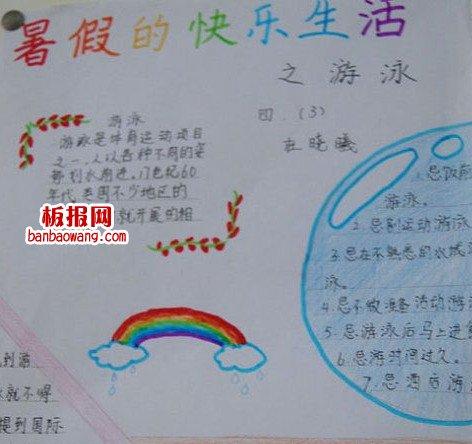 暑假的快乐生活
之游泳
四.(3)
游泳
游泳是体育运动项目
之一.人以各种不同的姿
势划水前进.17世纪60
年代英国不少地区的
就开展的相
板报网
banbaowang.com
1.忌饭前
游泳.
2.忌剧运动游泳
3.忌在不熟悉的水域
泳.
4.忌不做准备活动游
5.忌游泳后马上进
6.忌游时间过久.
7.忌酒后游
到游
就不得
提到国际